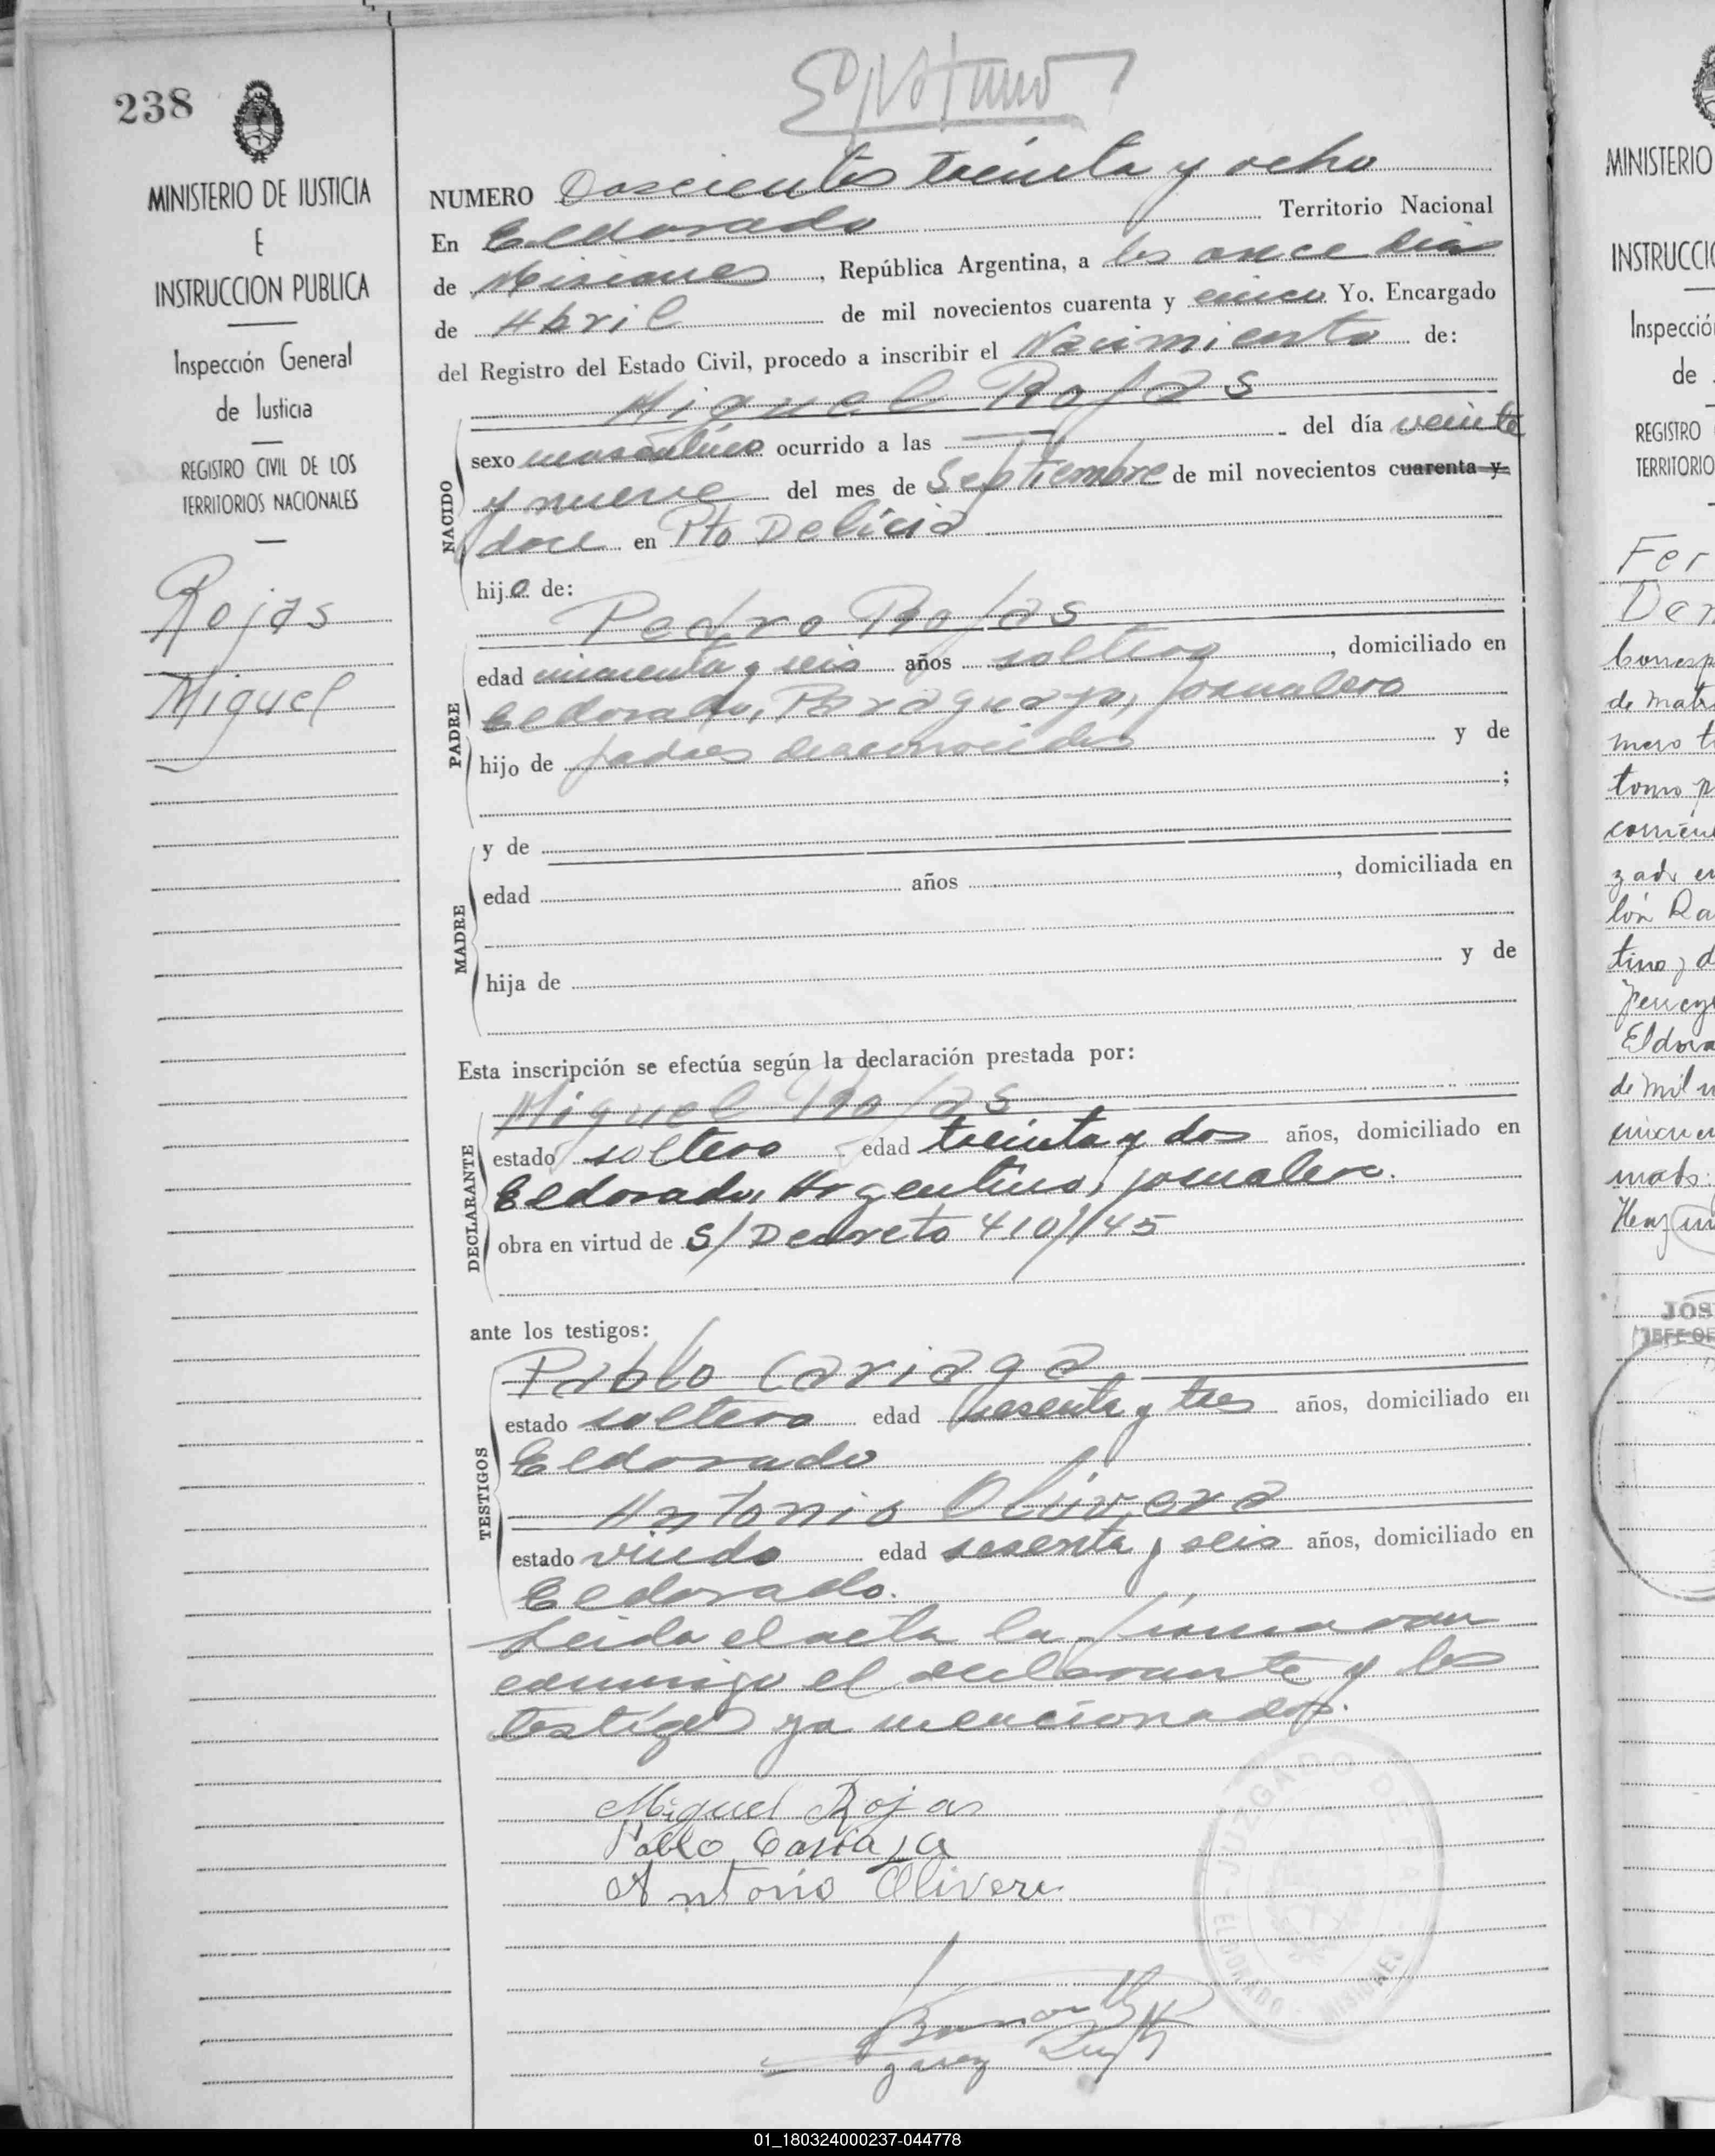 238
MINISTERIO DE JUSTICIA
E
INSTRUCCION PUBLICA
Inspección General
de Justicia
REGISTRO CIVIL DE LOS
TERRITORIOS NACIONALES
Rojas
Miguel
NUMERO Doscientos treinta y ocho
En Eldorado Territorio Nacional
de Misiones, República Argentina, a los once dias
de Abril de mil novecientos cuarenta y cinco Yo, Encargado
del Registro del Estado Civil, procedo a inscribir el Nacimiento de:
Miguel Rojas
NACIDO
sexo masculino ocurrido a las — del día veinte
y nueve del mes de Septiembre de mil novecientos cuarenta y
doce en Pto Delicia
hijo de:
Pedro Rojas
PADRE
edad cincuenta y seis años soltero, domiciliado en
Eldorado, Paraguayo, jornalero
hijo de padres desconocidos y de
;
MADRE
y de
edad años , domiciliada en
hija de y de
Esta inscripción se efectúa según la declaración prestada por:
Miguel Rojas
DECLARANTE
estado soltero edad treinta y dos años, domiciliado en
Eldorado, Argentino, jornalero.
obra en virtud de S/Decreto 410//45
ante los testigos:
Pablo Cariaga
TESTIGOS
estado soltero edad sesenta y tres años, domiciliado en
Eldorado
Antonio Olivera
estado viudo edad sesenta y seis años, domiciliado en
Eldorado.
Leida el acta la firmaron
conmigo el declarante y los
testigos ya mencionados.
Miguel Rojas
Pablo Cariaga
Antonio Olivera
JUZGADO DE
ELDORADO - MISIONES
MINISTERIO
INSTRUCCIO
Inspecció
de
REGISTRO
TERRITORIO
Fer
corresp
de matr
mero t
tomo p
lón Ra
tino, d
Eldora
de mil n
JOS
JEFE OF
01_180324000237-044778